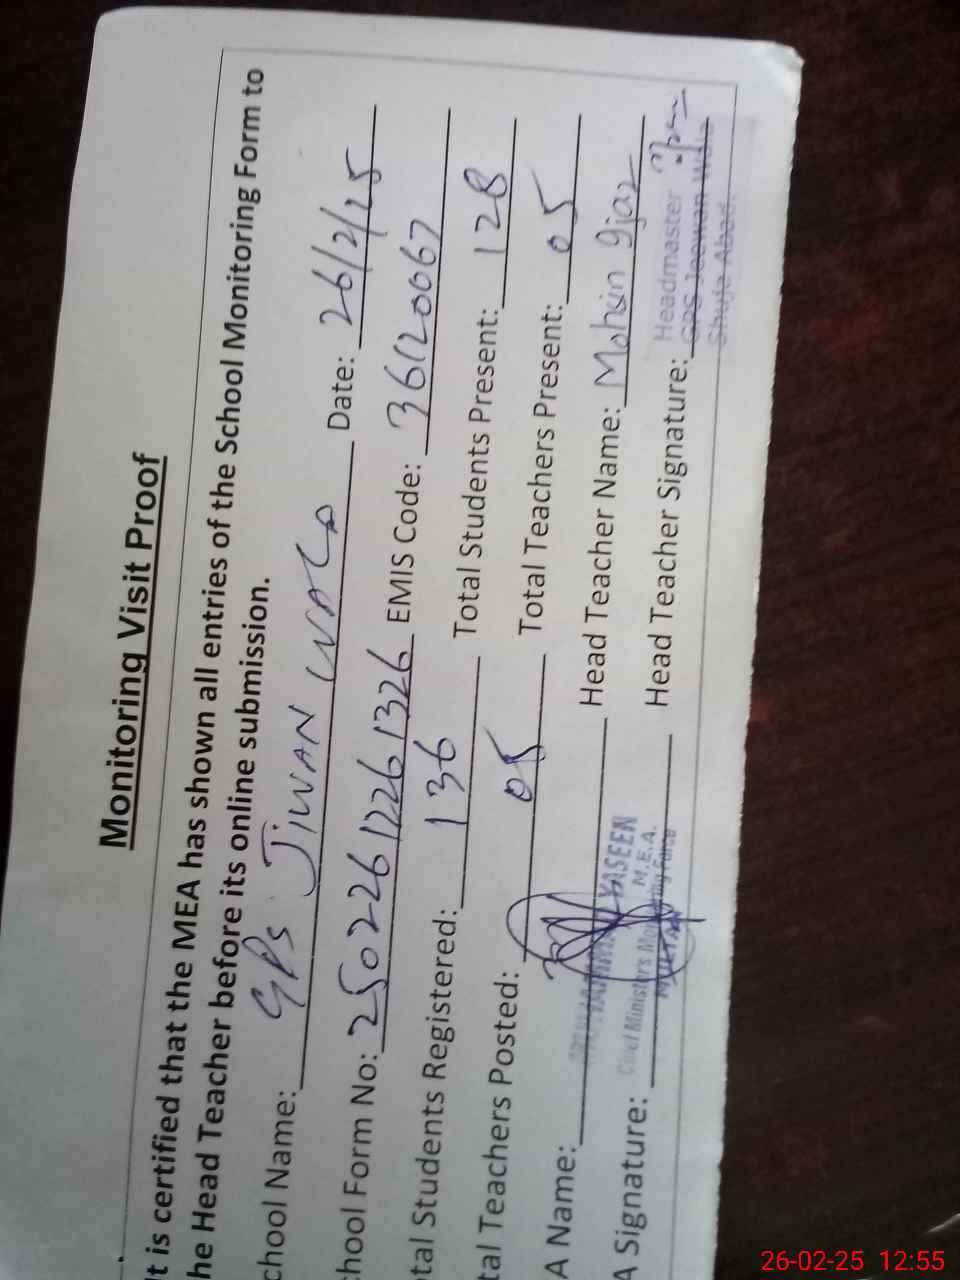 Monitoring Visit Proof
It is certified that the MEA has shown all entries of the School Monitoring Form to
he Head Teacher before its online submission.
chool Name: GPS JIWAN WALA Date: 26/2/25
chool Form No: 250226122661326 EMIS Code: 36120067
tal Students Registered: 136 Total Students Present: 128
tal Teachers Posted: 05 Total Teachers Present: 05
A Name: YASEEN Head Teacher Name: Mohsin Ijaz
M.E.A.
Chief Minister's Monitoring Force
MULTAN
A Signature: Head Teacher Signature:
Headmaster
GPS Jeewan Wala
Shuja Abad.
26-02-25 12:55